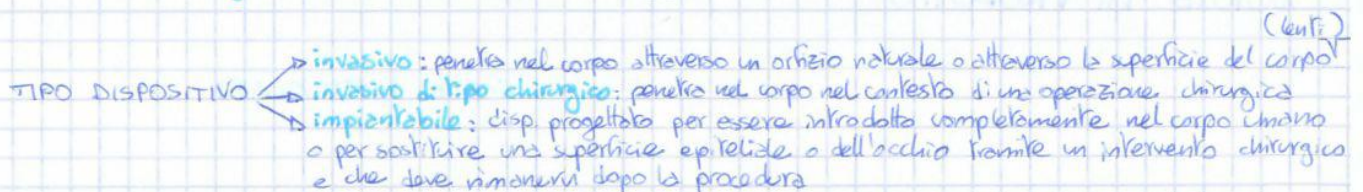 (lenti)
invasivo: penetra nel corpo attraverso un orifizio naturale o attraverso la superficie del corpo
TIPO DISPOSITIVO invasivo di tipo chirurgico: penetra nel corpo nel contesto di una operazione chirurgica
impiantabile: disp. progettato per essere introdotto completamente nel corpo umano
o per sostituire una superficie epiteliale o dell'occhio tramite un intervento chirurgico
e che deve rimanervi dopo la procedura